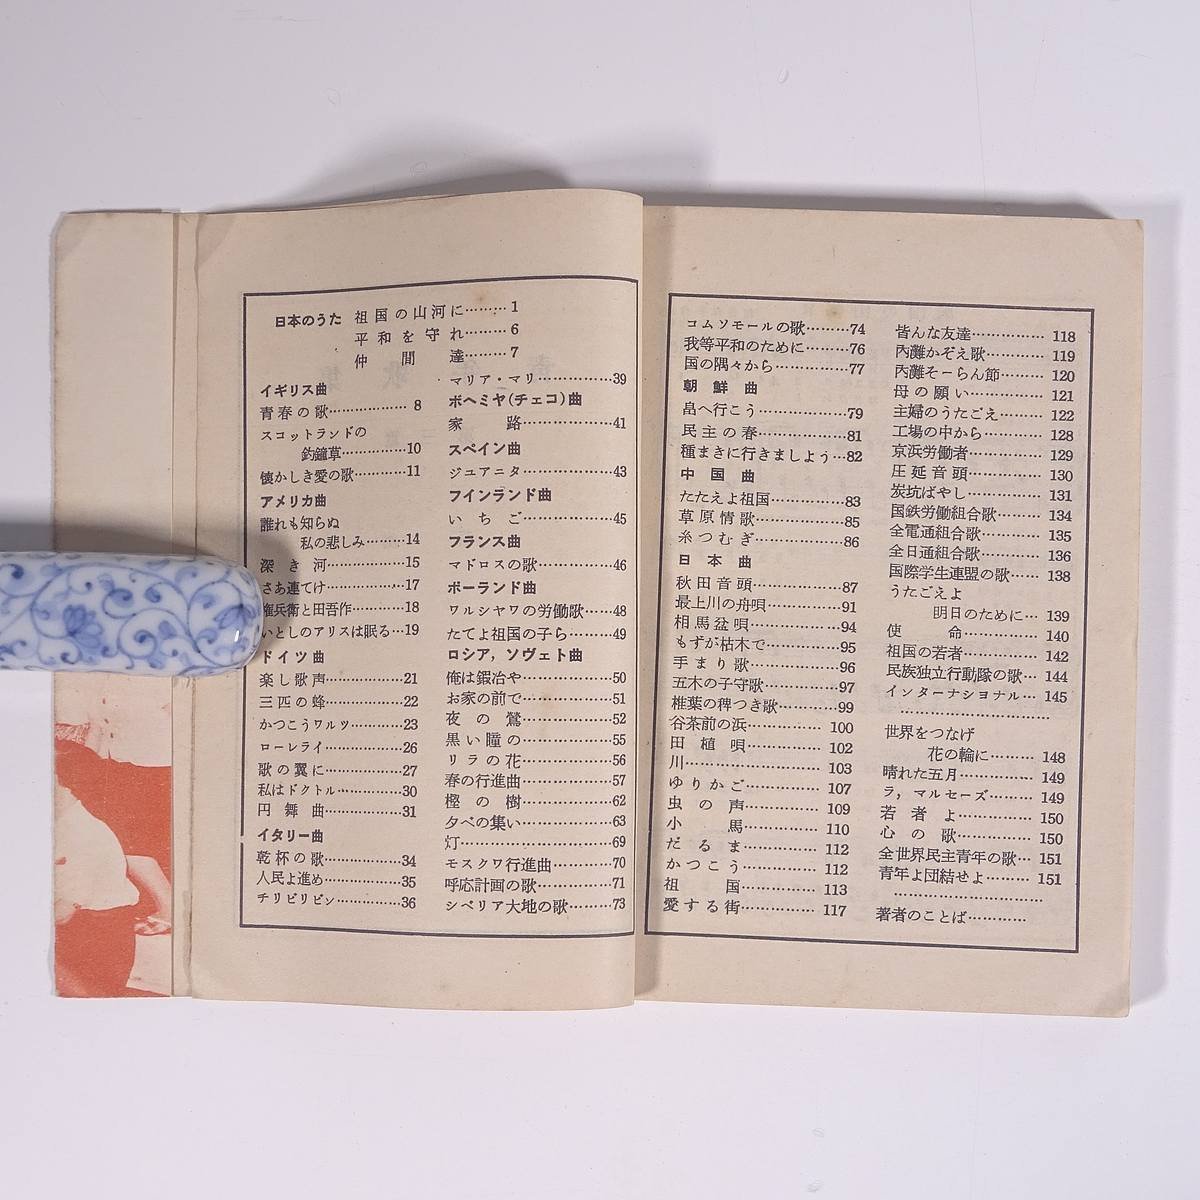 日本のうた 祖国の山河に………1
平和を守れ………6
仲間達………7
イギリス曲
青春の歌………………8
スコットランドの
釣鐘草……………10
懐かしき愛の歌…………11
アメリカ曲
誰れも知らぬ
私の悲しみ………14
深き河………………15
さあ連てけ……………17
権兵衛と田吾作…………18
いとしのアリスは眠る…19
ドイツ曲
楽し歌声………………21
三匹の蜂………………22
かつこうワルツ…………23
ローレライ……………26
歌の翼に………………27
私はドクトル……………30
円舞曲………………31
イタリー曲
乾杯の歌………………34
人民よ進め……………35
チリビリビン……………36
マリア・マリ……………39
ボヘミヤ(チェコ)曲
家路………………41
スペイン曲
ジュアニタ………………43
フインランド曲
いちご………………45
フランス曲
マドロスの歌……………46
ポーランド曲
ワルシヤワの労働歌……48
たてよ祖国の子ら………49
ロシア，ソヴェト曲
俺は鍜冶や………………50
お家の前で………………51
夜の鶯………………52
黒い瞳の………………55
リラの花………………56
春の行進曲………………57
樫の樹………………62
夕べの集い………………63
灯…………………………69
モスクワ行進曲…………70
呼応計画の歌……………71
シベリア大地の歌………73
コムソモールの歌………74
我等平和のために………76
国の隅々から……………77
朝鮮曲
畠へ行こう………………79
民主の春………………81
種まきに行きましよう…82
中国曲
たたえよ祖国……………83
草原情歌………………85
糸つむぎ………………86
日本曲
秋田音頭………………87
最上川の舟唄……………91
相馬盆唄………………94
もずが枯木で……………95
手まり歌………………96
五木の子守歌……………97
椎葉の稗つき歌…………99
谷茶前の浜……………100
田植唄……………102
川………………………103
ゆりかご……………107
虫の声……………109
小馬……………110
だるま……………112
かつこう……………112
祖国……………113
愛する街……………117
皆んな友達……………118
內灘かぞえ歌…………119
內灘そーらん節………120
母の願い……………121
主婦のうたごえ………122
工場の中から…………128
京浜労働者……………129
圧延音頭……………130
炭坑ばやし……………131
国鉄労働組合歌………134
全電通組合歌…………135
全日通組合歌…………136
国際学生連盟の歌……138
うたごえよ
明日のために…139
使命……………140
祖国の若者……………142
民族独立行動隊の歌…144
インターナショナル…145
…………………………
世界をつなげ
花の輪に………148
晴れた五月……………149
ラ，マルセーズ………149
若者よ……………150
心の歌……………150
全世界民主青年の歌…151
青年よ団結せよ………151
…………………………
著者のことば…………